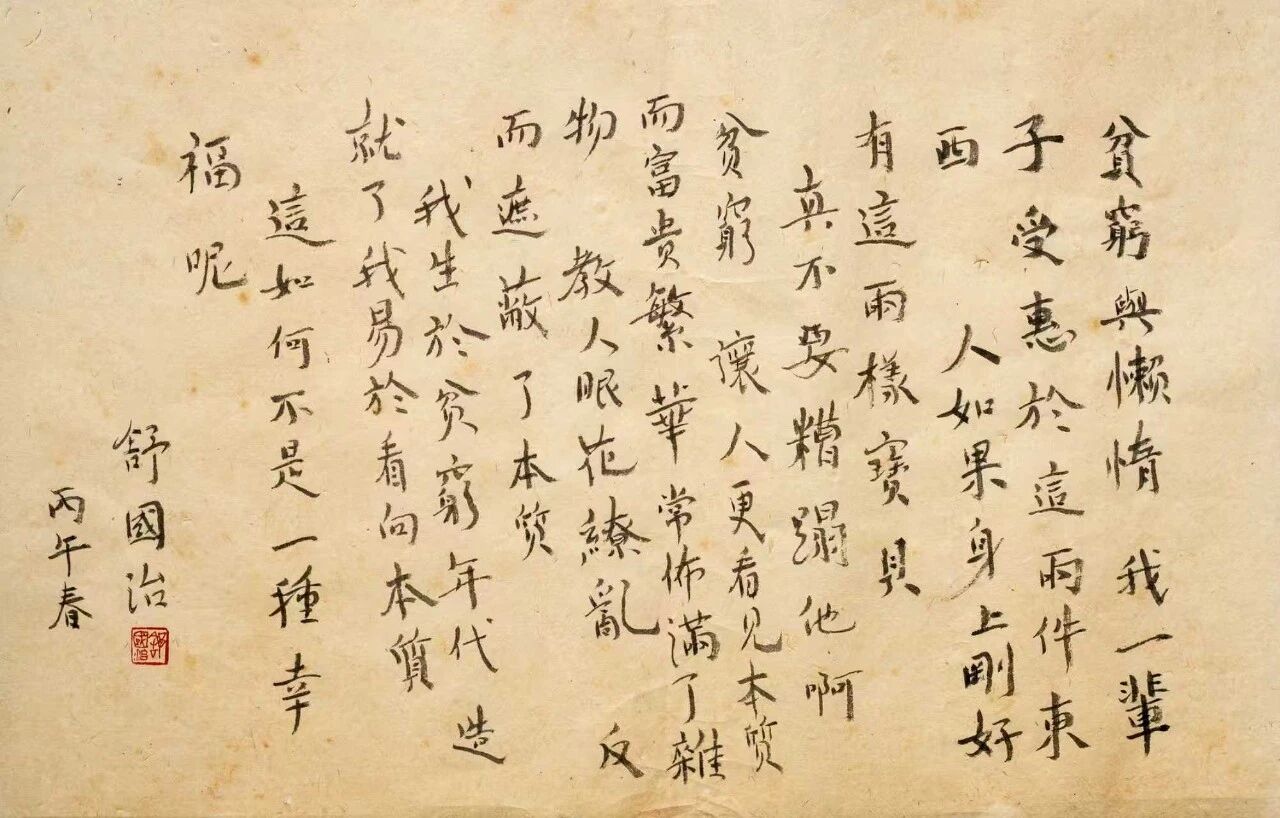 貧窮與懶惰 我一輩
子受惠於這兩件東
西 人如果身上剛好
有這兩樣寶貝
真不要糟蹋他啊
貧窮 讓人更看見本質
而富貴繁華常佈滿了雜
物 教人眼花繚亂 反
而遮蔽了本質
我生於貧窮年代 造
就了我易於看向本質
這如何不是一種幸
福呢
舒國治
丙午春
舒國治